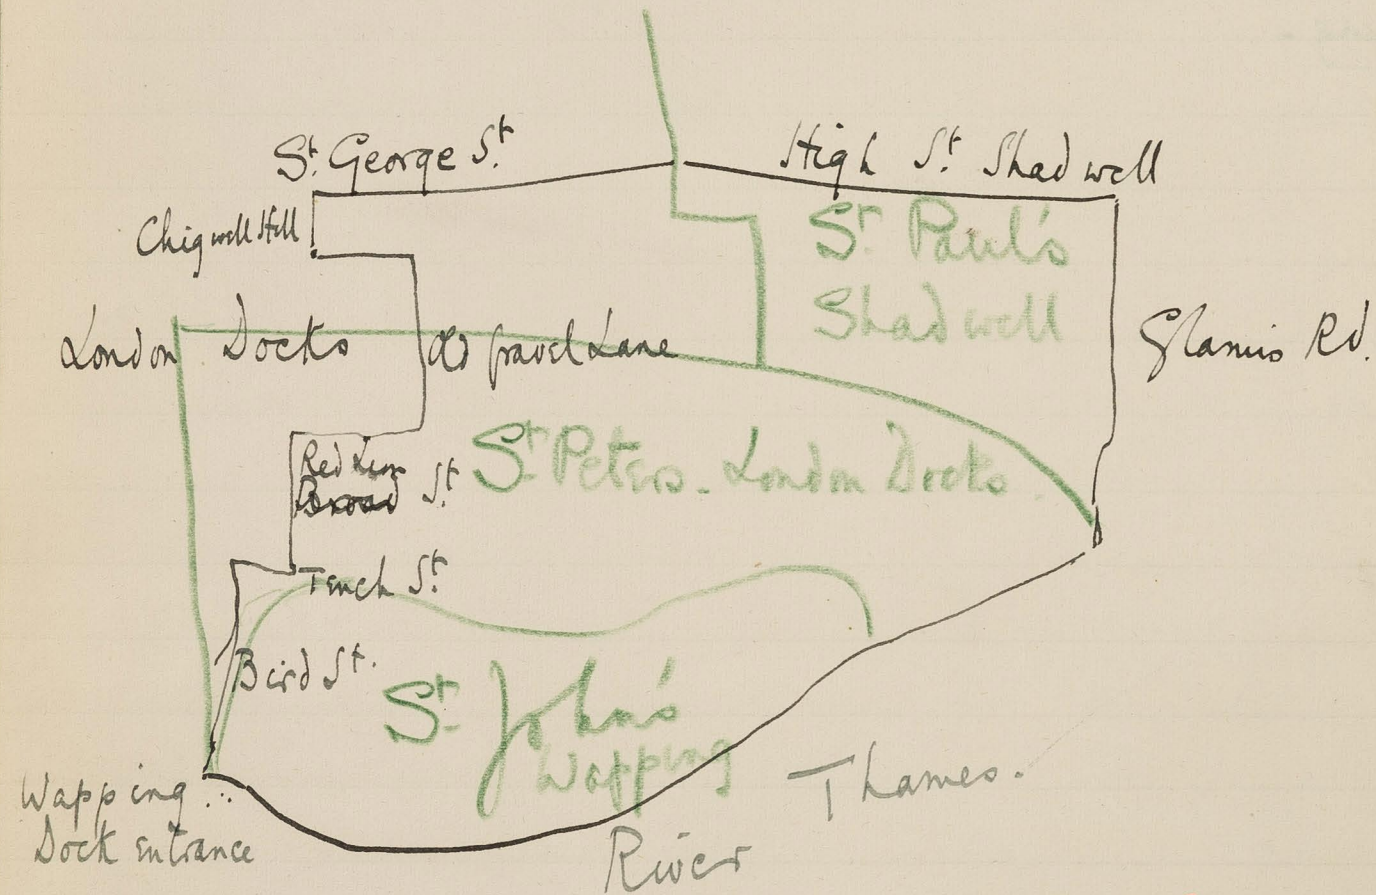 St. George St.
High St. Shadwell
Chigwell Hill
St. Paul's
Shadwell
London Docks
Old Gravel Lane
Glamis Rd.
Red Lion
Broad St.
St. Peters. London Docks
Tench St.
Bird St.
St. John's
Wapping
Wapping
Dock entrance
River Thames.